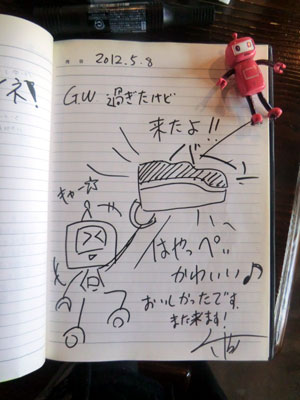 ネ!
2012.5.8
GW 過ぎたけど
来たよ!!
キャー☆
はやっぺぃ
かわいい♪
おいしかったです。
また来ます!